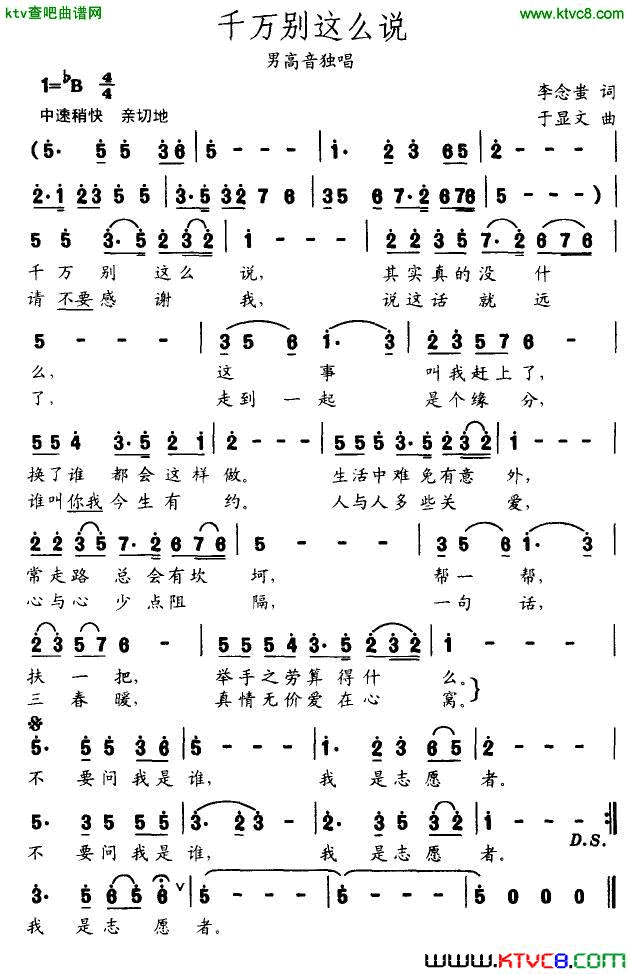 ktv查吧曲谱网
www.ktvc8.com
千万别这么说
男高音独唱
1=♭B 4/4
中速稍快 亲切地
李念蚩 词
于显文 曲
(5· 5 5 36 | 5 - - - | 1· 2 3 65 | 2 - - - |
2·1 23 5 5 | 3·5 32 7 6 | 35 6 7·2 676 | 5 - - - )
5 5 3·5 232 | 1 - - - | 22 35 7·2 676 |
千万别这么说, 其实真的没什
请不要感谢我, 说这话就远
5 - - - | 35 6 1· 3 | 23 57 6 - |
么, 这事 叫我赶上了,
了, 走到一起 是个缘分,
55 4 3·5 2 1 | 2 - - - | 555 3·5 232 | 1 - - - |
换了谁都会这样做。 生活中难免有意外,
谁叫你我今生有约。 人与人多些关爱,
22 35 7·2 676 | 5 - - - | 35 6 1· 3 |
常走路总会有坎坷, 帮一帮,
心与心少点阻隔, 一句话,
23 57 6 - | 55 54 3·5 232 | 1 - - - |
扶一把, 举手之劳算得什么。
三春暖, 真情无价爱在心窝。
5· 5 5 36 | 5 - - - | 1· 2 3 65 | 2 - - - |
不要问我是谁, 我是志愿者。
5· 3 5 55 | 3· 23 - | 2· 35 232 | 1 - - - :|
D.S.
不要问我是谁, 我是志愿者。
3· 2 3 56 6 ∨ | 5 - - - | 5 - - - | 5 0 0 0 ‖
我是志愿者。
www.KTVC8.com